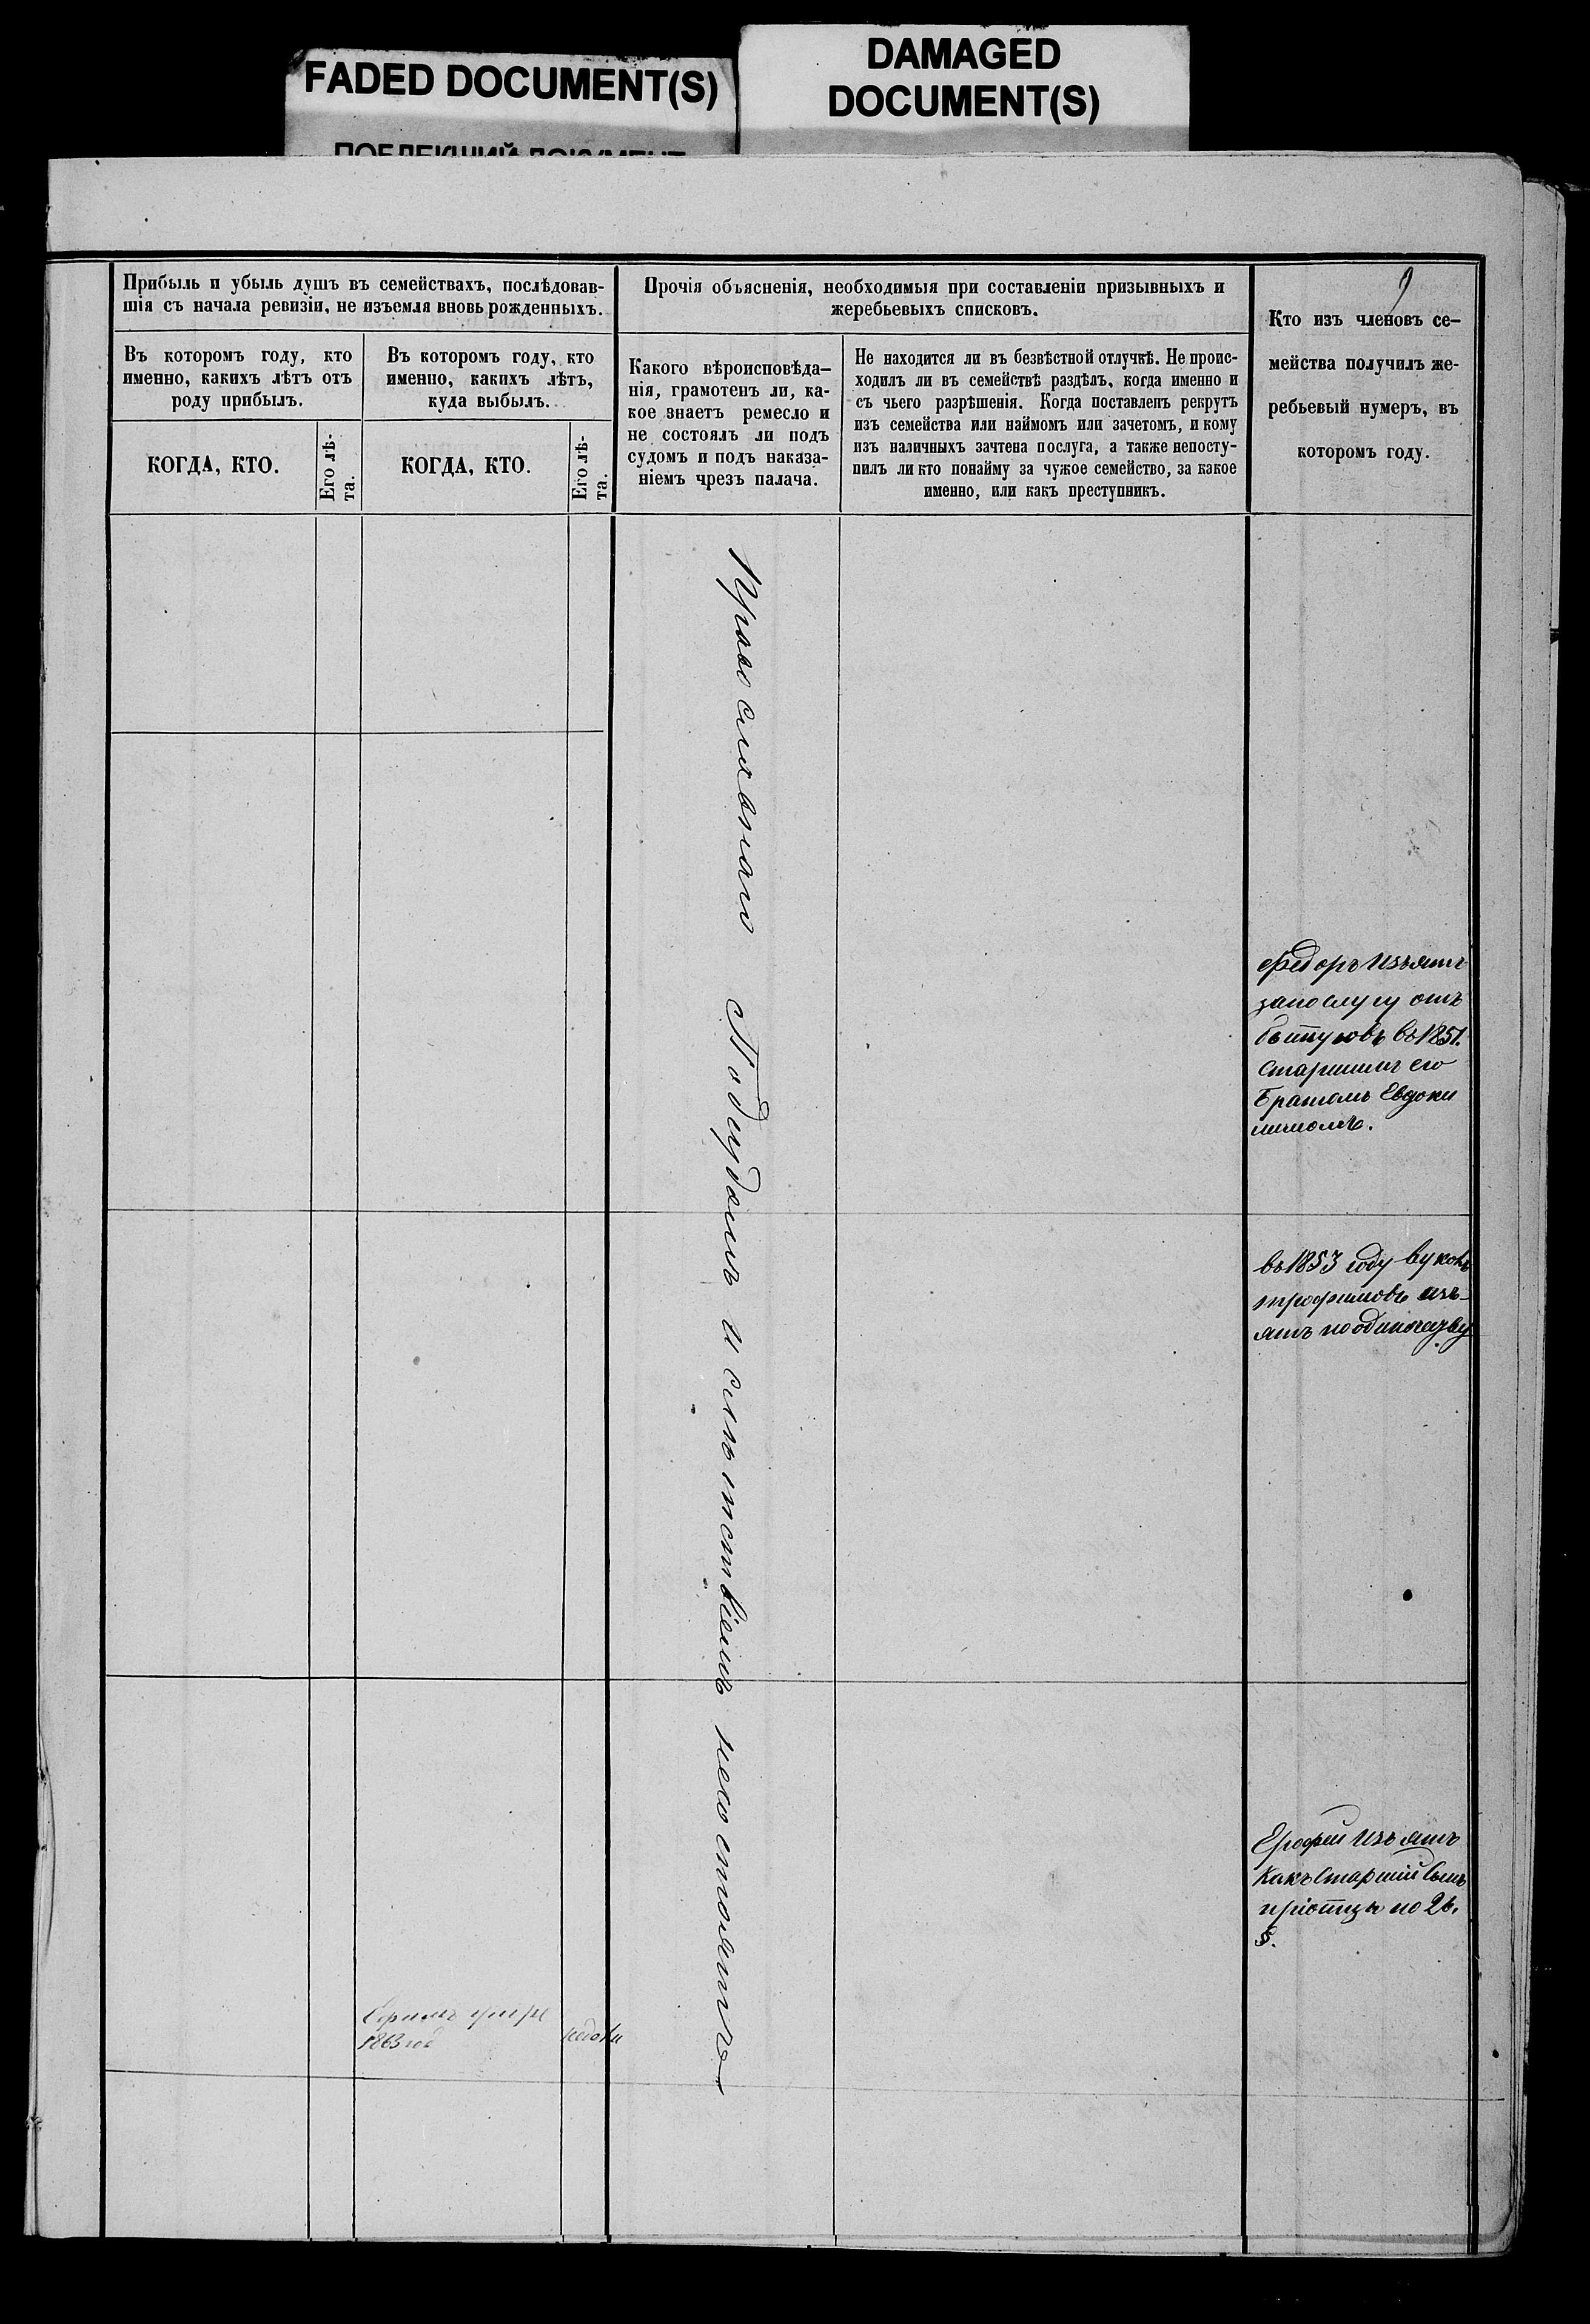 FADED DOCUMENT(S)
DAMAGED
DOCUMENT(S)
ПОБЛЕКШИЙ ДОКУМЕНТ
9
Прибыль и убыль душъ въ семействахъ, послѣдовав-
шія съ начала ревизіи, не изъемля вновь рожденныхъ.
Въ которомъ году, кто
именно, какихъ лѣтъ отъ
роду прибылъ.
КОГДА, КТО.
Его лѣ-
та.
Въ которомъ году, кто
именно, какихъ лѣтъ,
куда выбылъ.
КОГДА, КТО.
Его лѣ-
та.
Прочія объясненія, необходимыя при составленіи призывныхъ и
жеребьевыхъ списковъ.
Какого вѣроисповѣда-
нія, грамотенъ ли, ка-
кое знаетъ ремесло и
не состоялъ ли подъ
судомъ и подъ наказа-
ніемъ чрезъ палача.
Не находится ли въ безвѣстной отлучкѣ. Не проис-
ходилъ ли въ семействѣ раздѣлъ, когда именно и
съ чьего разрѣшенія. Когда поставленъ рекрутъ
изъ семейства или наймомъ или зачетомъ, и кому
изъ наличныхъ зачтена послуга, а также непосту-
пилъ ли кто понайму за чужое семейство, за какое
именно, или какъ преступникъ.
Кто изъ членовъ се-
мейства получилъ же-
ребьевый нумеръ, въ
которомъ году.
Православнаго Подсудомъ и следствіемъ несостоятъ
Федоръ Изъятъ
запослугу отъ
въ 1851.
старшимъ его
Братомъ Евдоки
мимомъ.
въ 1853 году
трофимовъ изъ-
ятъ поодиночеству
Ерофей Изъятъ
какъ Старшій Сынъ
приотцѣ по 26.
§.
Ефимъ умре
1863 год